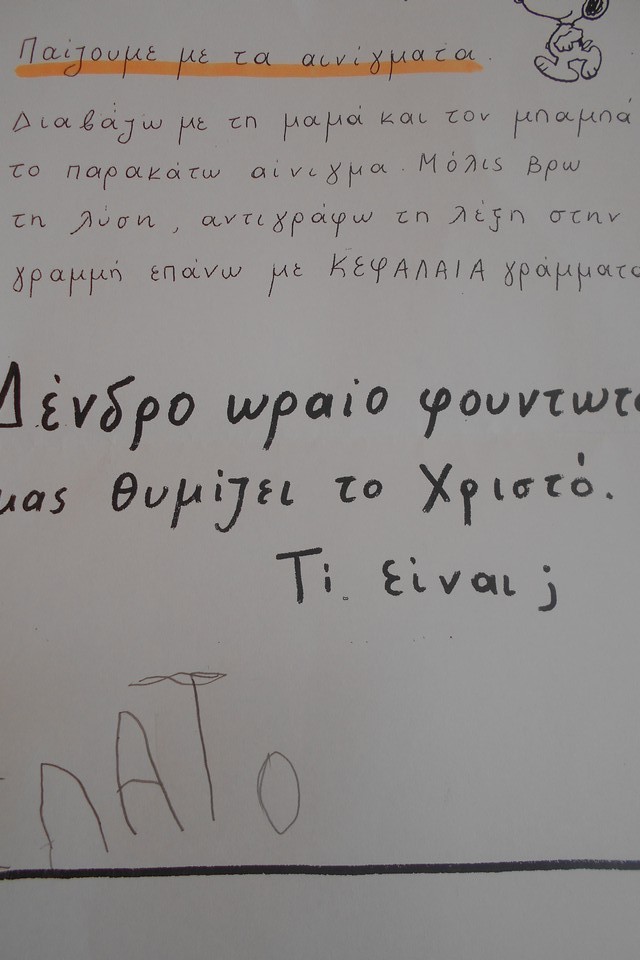 Παίζουμε με τα αινίγματα.
Διαβάζω με τη μαμά και τον μπαμπά
το παρακάτω αίνιγμα. Μόλις βρω
τη λύση, αντιγράφω τη λέξη στην
γραμμή επάνω με ΚΕΦΑΛΑΙΑ γράμματα
Δένδρο ωραίο φουντωτό
μας θυμίζει το Χριστό.
Τί είναι;
ΕΛΑΤΟ